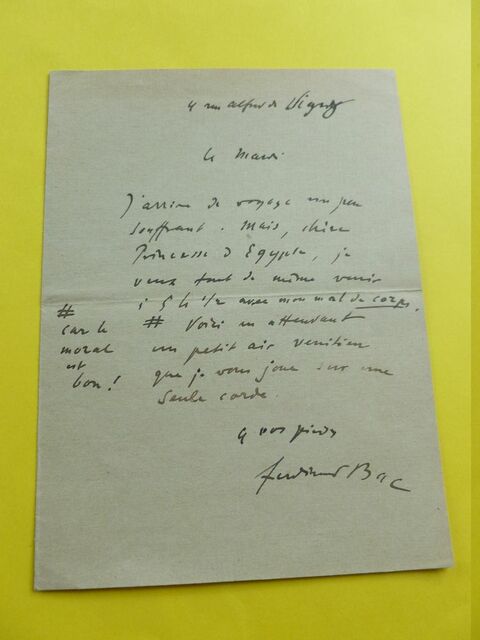 4 rue Alfred de Vigny
Le Mardi
J'arrive de voyage un peu
souffrant. Mais, chère
Princesse d'Egypte, je
veux tout de même venir
à 5 h 1/2 avec mon mal de corps.
# Voici en attendant
un petit air vénitien
que je vous joue sur une
seule corde.
#
car le
moral
est
bon !
à vos pieds
Ferdinand Bac